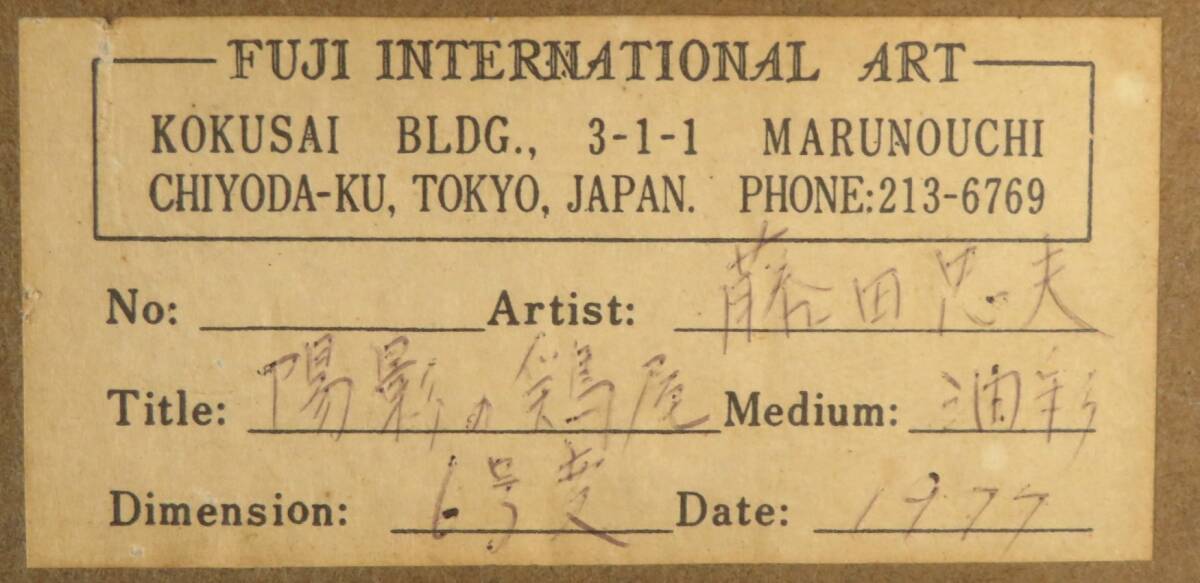 FUJI INTERNATIONAL ART
KOKUSAI BLDG., 3-1-1 MARUNOUCHI
CHIYODA-KU, TOKYO, JAPAN. PHONE:213-6769
No: Artist: 藤田忠夫
Title: 陽影の鶏尾 Medium: 油彩
Dimension: 6号変 Date: 1977